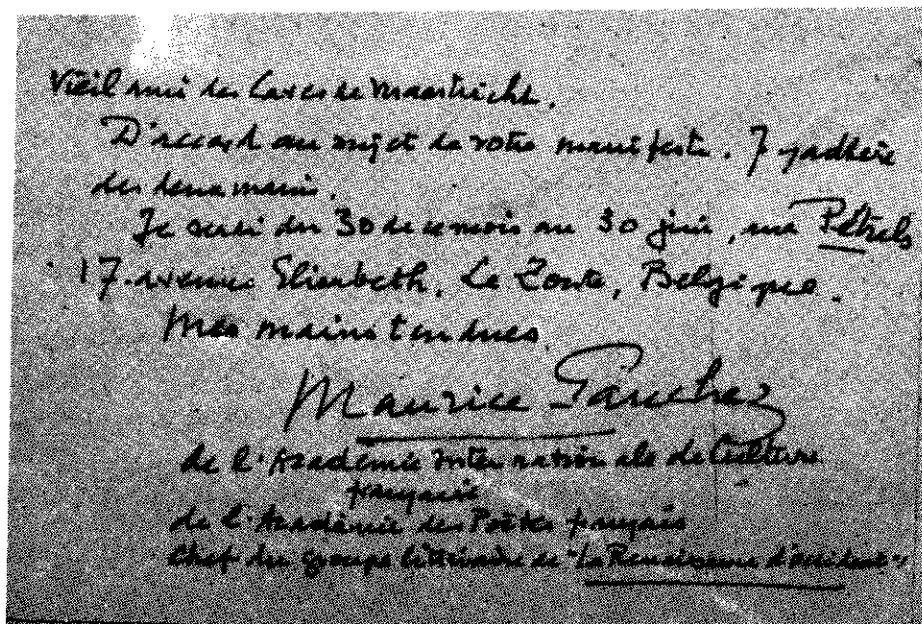 Vieil ami des Caves de Maestricht.
D'accord au sujet de votre manifeste. J'y adhère
des deux mains.
Je serai du 30 de ce mois au 30 juin, Pétrels
17. avenue Elisabeth, Le Zoute, Belgique.
Mes mains tendues.
Maurice Gauchez
de l'Académie internationale de Culture
française
de l'Académie des Poètes français
chef du groupe littéraire de "La Renaissance d'Occident"